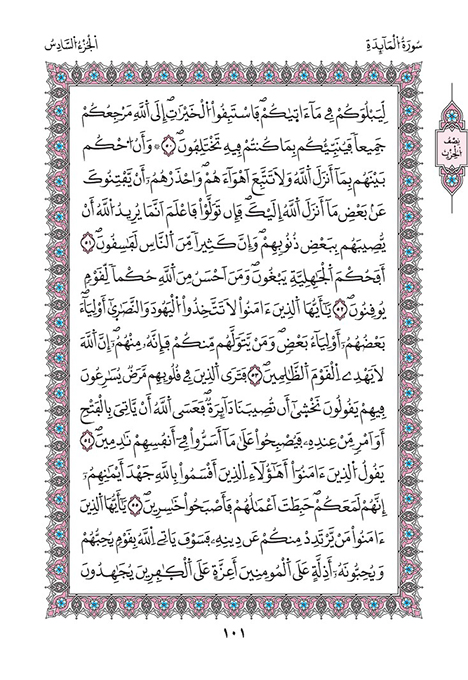 سُورَةُ الْمَآئِدَةِ
الْجُزْءُ السَّادِسُ
لِّيَبْلُوَكُمْ فِي مَآ ءَاتٜيٰكُمْ فَاسْتَبِقُوا۟ الْخَيْرَٰتِ إِلَى اللَّهِ مَرْجِعُكُمْ
جَمِيعاً فَيُنَبِّئُكُم بِمَا كُنتُمْ فِيهِ تَخْتَلِفُونَ ٥٠ وَأَنُ احْكُم
بَيْنَهُم بِمَآ أَنزَلَ اللَّهُ وَلَا تَتَّبِعَ اَهْوَآءَهُمْ وَاحْذَرْهُمُۥٓ أَنْ يَّفْتِنُوكَ
عَنۢ بَعْضِ مَآ أَنزَلَ اللَّهُ إِلَيْكَ فَإِن تَوَلَّوْا۟ فَاعْلَمَ اَنَّمَا يُرِيدُ اللَّهُ أَنْ
يُّصِيبَهُم بِبَعْضِ ذُنُوبِهِمْ وَإِنَّ كَثِيراً مِّنَ النَّاسِ لَفَٰسِقُونَ ٥١
أَفَحُكْمَ الْجَٰهِلِيَّةِ يَبْغُونَ وَمَنَ اَحْسَنُ مِنَ اللَّهِ حُكْماً لِّقَوْمٍ
يُوقِنُونَ ٥٢ يَٰٓأَيُّهَا الَّذِينَ ءَامَنُوا۟ لَا تَتَّخِذُوا۟ الْيَهُودَ وَالنَّصَٰرٜىٰٓ أَوْلِيَآءَ
بَعْضُهُمُۥٓ أَوْلِيَآءُ بَعْضٍ وَمَنْ يَّتَوَلَّهُم مِّنكُمْ فَإِنَّهُۥ مِنْهُمُۥٓ إِنَّ اللَّهَ
لَا يَهْدِي الْقَوْمَ الظَّٰلِمِينَ ٥٣ فَتَرَى الَّذِينَ فِي قُلُوبِهِم مَّرَضٌ يُسَٰرِعُونَ
فِيهِمْ يَقُولُونَ نَخْشٜىٰٓ أَن تُصِيبَنَا دَآئِرَةٌ فَعَسَى اللَّهُ أَنْ يَّاتِيَ بِالْفَتْحِ
أَوَ اَمْرٍ مِّنْ عِندِهِۦ فَيُصْبِحُوا۟ عَلَىٰ مَآ أَسَرُّوا۟ فِيٓ أَنفُسِهِمْ نَٰدِمِينَ ٥٤
يَقُولُ الَّذِينَ ءَامَنُوٓا۟ أَهَٰٓؤُلَآءِ الَّذِينَ أَقْسَمُوا۟ بِاللَّهِ جَهْدَ أَيْمَٰنِهِمُۥٓ
إِنَّهُمْ لَمَعَكُمْ حَبِطَتَ اَعْمَٰلُهُمْ فَأَصْبَحُوا۟ خَٰسِرِينَ ٥٥ يَٰٓأَيُّهَا الَّذِينَ
ءَامَنُوا۟ مَنْ يَّرْتَدِدْ مِنكُمْ عَن دِينِهِۦ فَسَوْفَ يَاتِي اللَّهُ بِقَوْمٍ يُحِبُّهُمْ
وَيُحِبُّونَهُۥٓ أَذِلَّةٍ عَلَى الْمُومِنِينَ أَعِزَّةٍ عَلَى الْكٰٜفِرِينَ يُجَٰهِدُونَ
نِصْف
الْحِزْب
١٠١